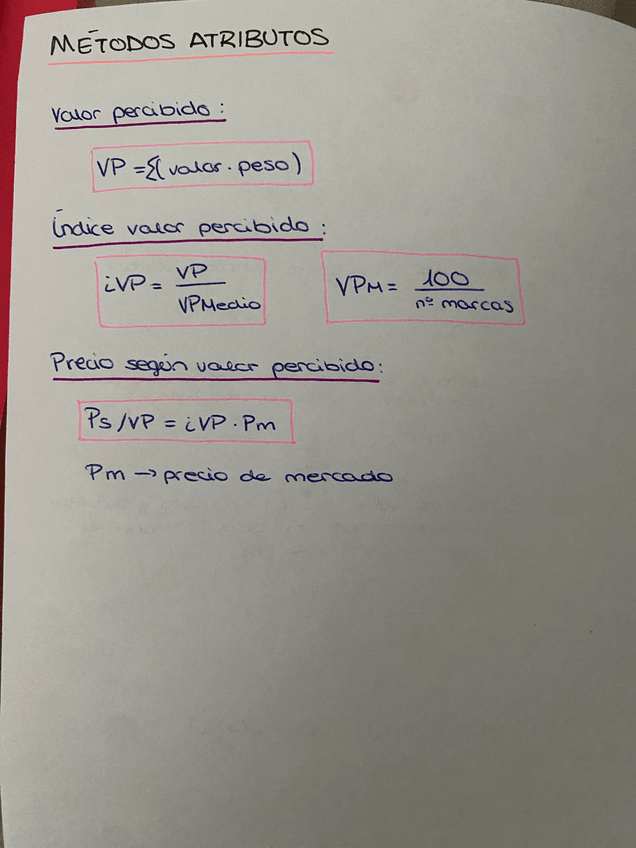 MÉTODOS ATRIBUTOS
Valor percibido :
VP = Σ( valor · peso )
Índice valor percibido :
iVP = VP / VPMedio
VPM = 100 / nº marcas
Precio según valor percibido:
Ps /VP = iVP · Pm
Pm → precio de mercado